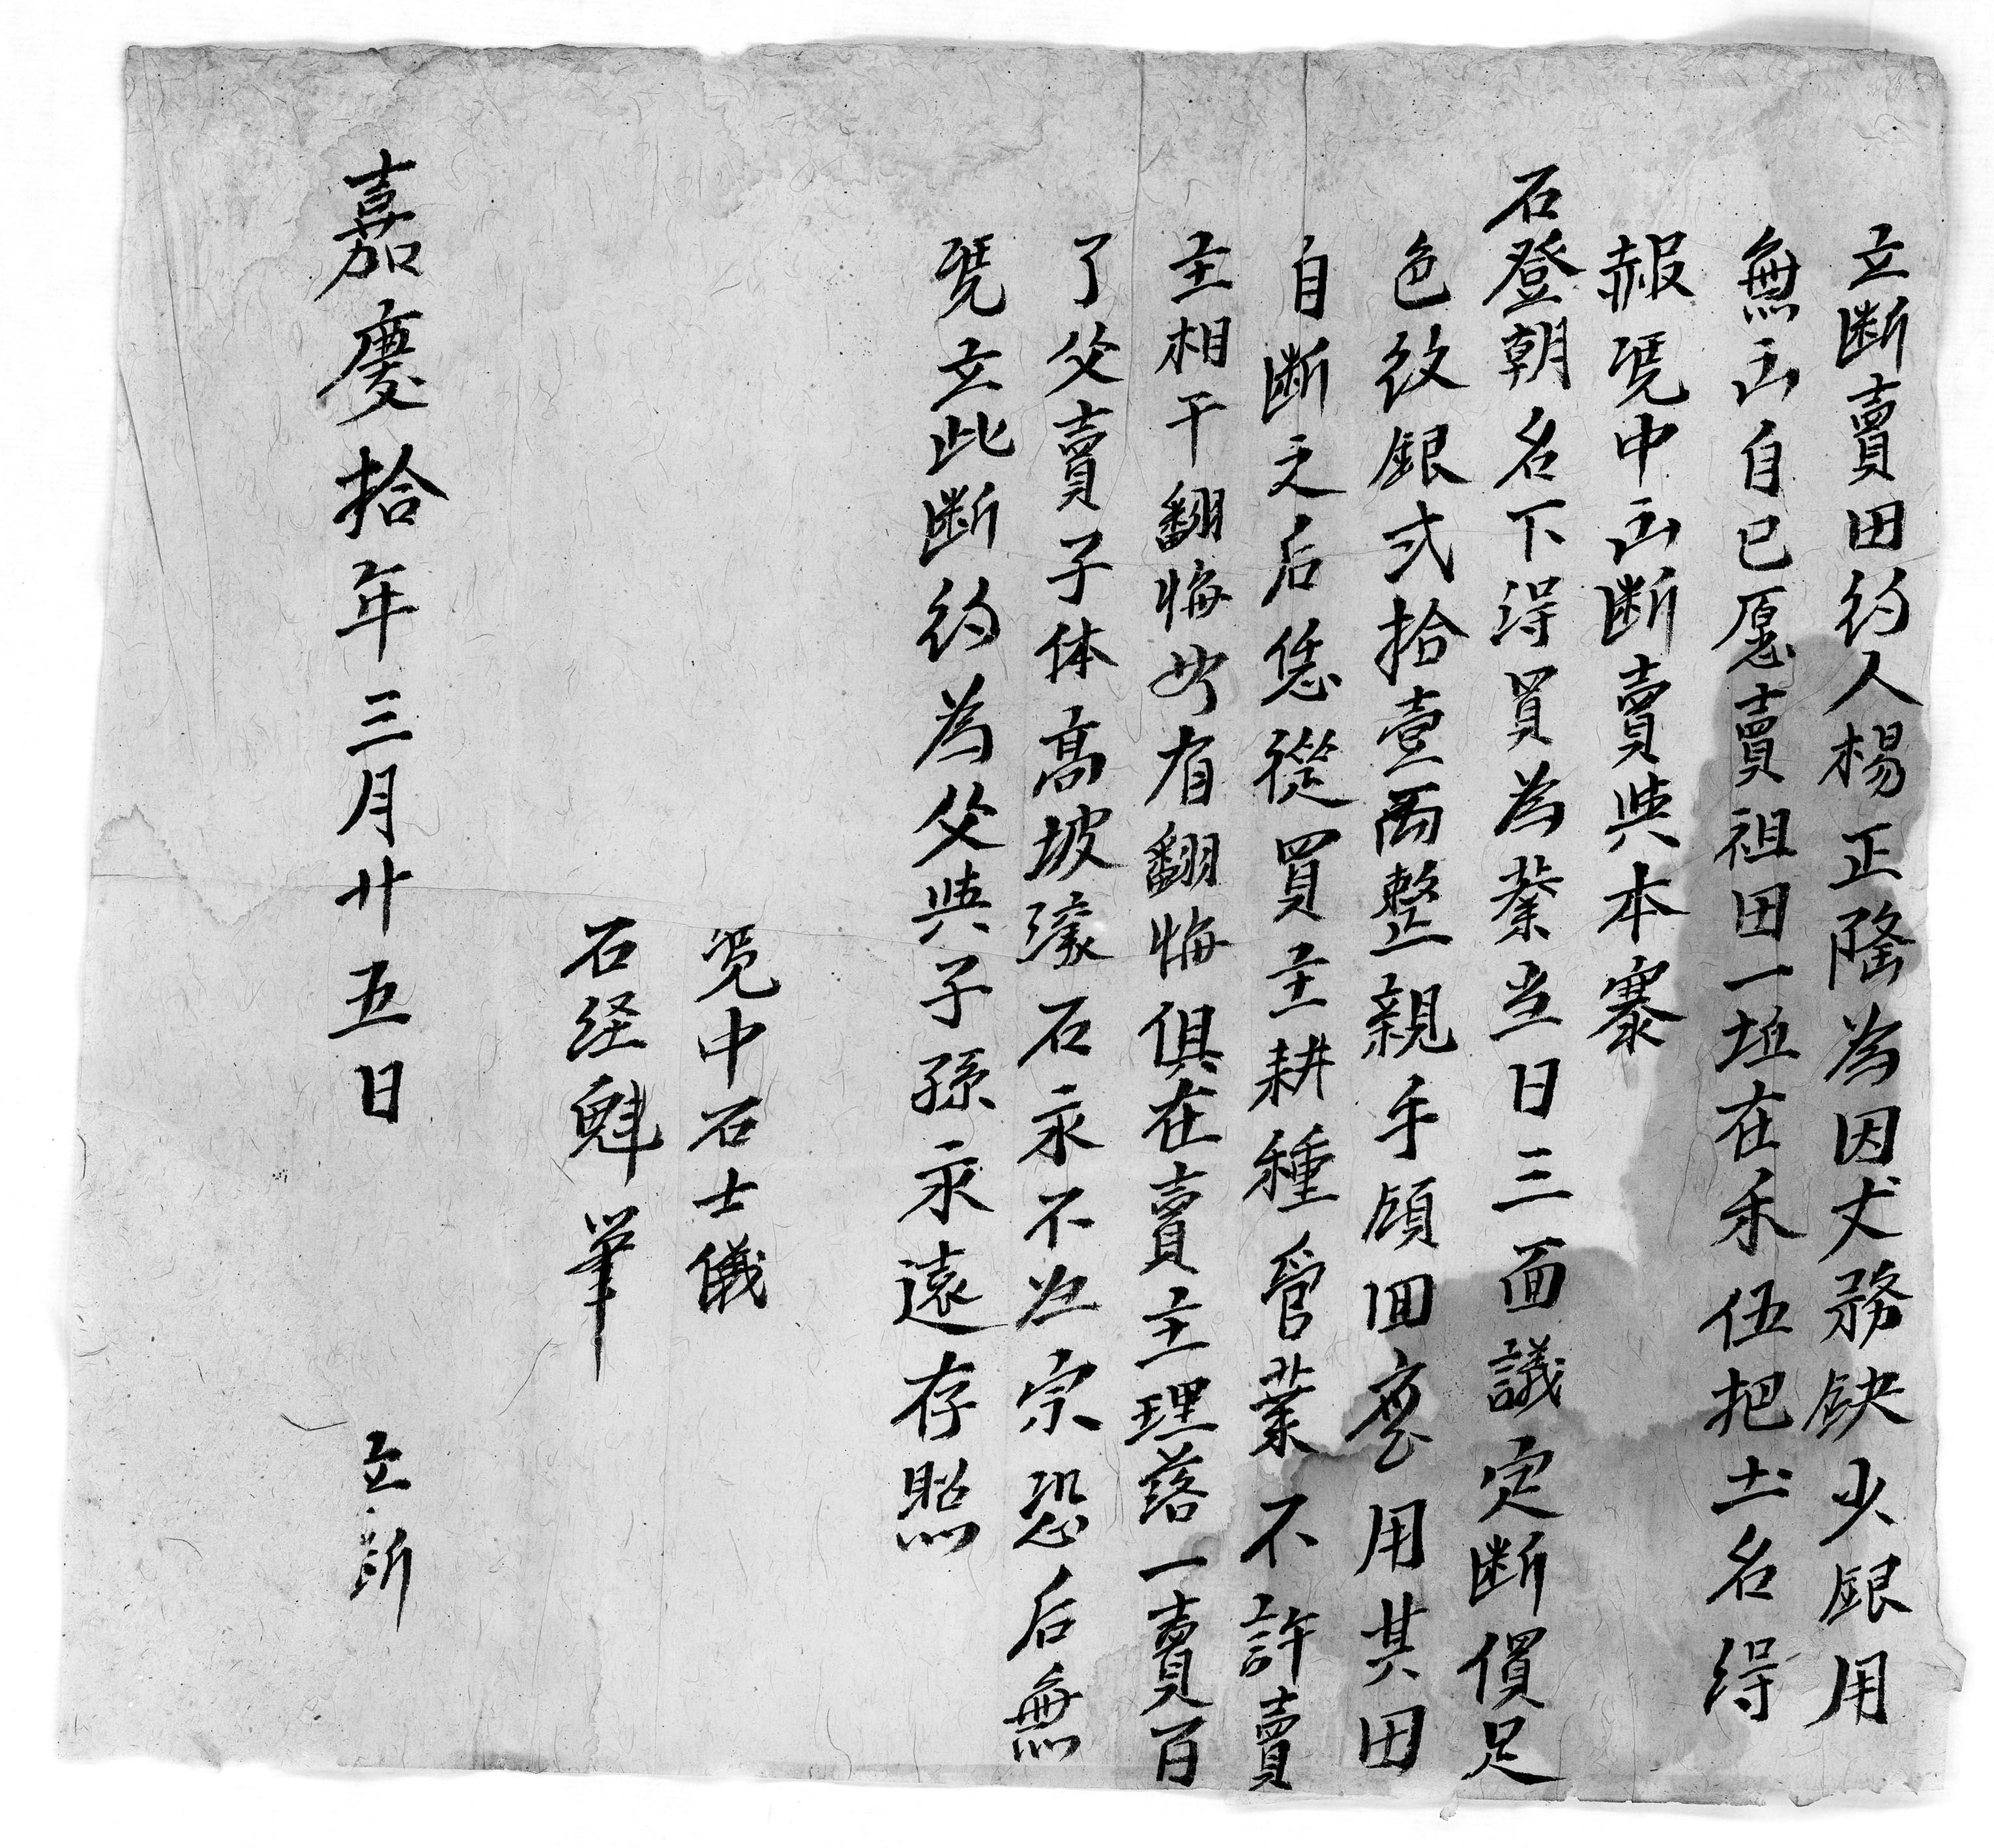 立断賣田約人楊正隆為因犬務缺少銀用
無出自已愿賣祖田一坵在禾伍把土名得
赧凴中出断賣與本寨
石登朝名下得買為業当日三面議定断價足
色紋銀弍拾壹両整親手領回應用其田
自断之后恁從買主耕種管業不許賣
主相干翻悔如有翻悔俱在賣主理落一賣百
了父賣子体高坡滚石永不歸宗恐后無
凴立此断約為父與子孫永遠存照
凴中石士儀
石经魁筆
嘉慶拾年三月廿五日 立断